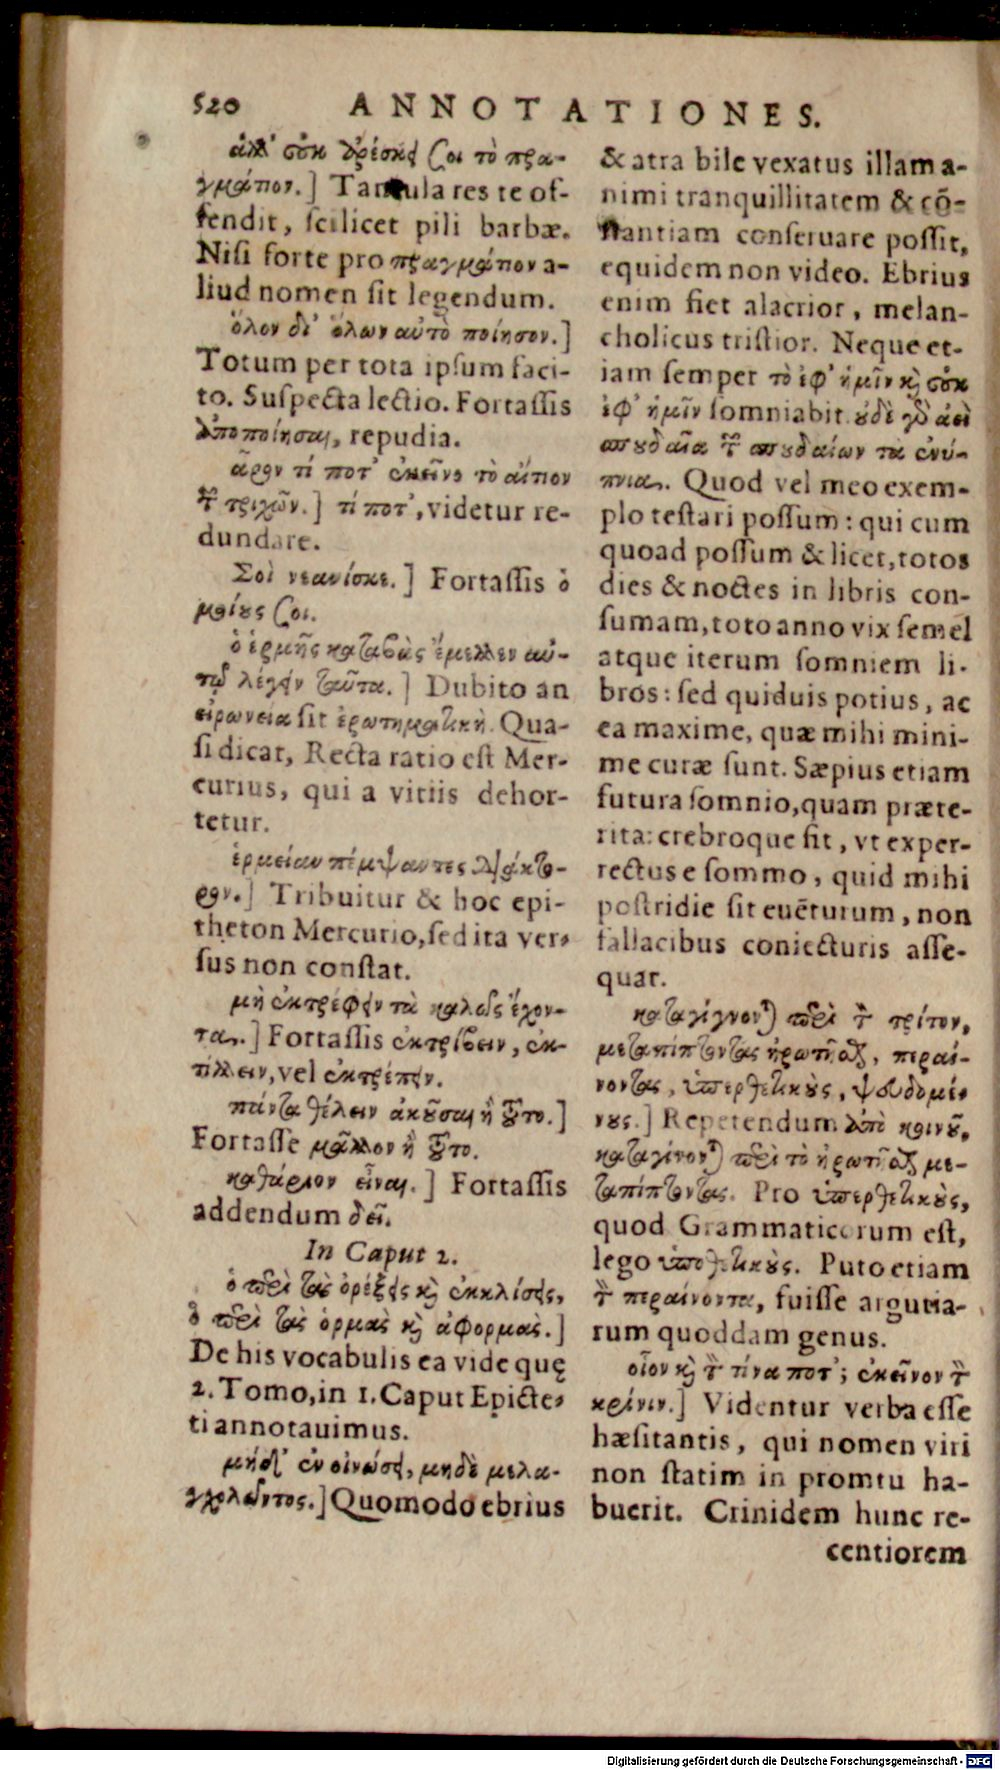 520 ANNOTATIONES.
ἀλλ' οὐκ ἀρέσκει σοι τὸ πρα-
γμάτιον.] Tantula res te of-
fendit, scilicet pili barbæ.
Nisi forte pro πραγμάτιον a-
liud nomen sit legendum.
ὅλον δι' ὅλων αὐτὸ ποίησον.]
Totum per tota ipsum faci-
to. Suspecta lectio. Fortassis
ἀποποίησαι, repudia.
ἆρον τί ποτ' ἐκεῖνο τὸ αἴτιον
τῶν τριχῶν.] τί ποτ', videtur re-
dundare.
Σοὶ νεανίσκε.] Fortassis ὁ
σοι.
ὁ ἑρμῆς καταβὰς ἔμελλεν αὐ-
τῷ λέγειν ταῦτα.] Dubito an
εἰρωνεία sit ἐρωτηματική. Qua-
si dicat, Recta ratio est Mer-
curius, qui a vitiis dehor-
tetur.
ἑρμείαν πέμψαντες διάκτο-
ρον.] Tribuitur & hoc epi-
theton Mercurio, sed ita ver-
sus non constat.
μὴ ἐκτρέφειν τὰ καλῶς ἔχον-
τα.] Fortassis ἐκτρίβειν, ἐκ-
τίλλειν, vel ἐκτρέπειν.
πάντα θέλειν ἀκοῦσαι ἢ τοῦτο.]
Fortasse μᾶλλον ἢ τοῦτο.
καθάριον εἶναι.] Fortassis
addendum δεῖ.
In Caput 2.
ὁ περὶ τὰς ὀρέξεις καὶ ἐκκλίσεις,
ὁ περὶ τὰς ὁρμὰς καὶ ἀφορμὰς.]
De his vocabulis ea vide quę
2. Tomo, in 1. Caput Epicte-
ti annotauimus.
μήδ' ἐν οἰνώσει, μηδὲ μελα-
γχολῶντος.] Quomodo ebrius
& atra bile vexatus illam a-
nimi tranquillitatem & cō-
stantiam conseruare possit,
equidem non video. Ebrius
enim fiet alacrior, melan-
cholicus tristior. Neque et-
iam semper τὸ ἐφ' ἡμῖν καὶ οὐκ
ἐφ' ἡμῖν somniabit. οὐδὲ γὰρ ἀεὶ
σπουδαῖα τῶν σπουδαίων τὰ ἐνύ-
πνια. Quod vel meo exem-
plo testari possum: qui cum
quoad possum & licet, totos
dies & noctes in libris con-
sumam, toto anno vix semel
atque iterum somniem li-
bros: sed quiduis potius, ac
ea maxime, quæ mihi mini-
me curæ sunt. Sæpius etiam
futura somnio, quam præte-
rita: crebroque fit, vt exper-
rectus e sommo, quid mihi
postridie sit euēturum, non
fallacibus coniecturis asse-
quar.
καταγίγνονται περὶ τὸν τρίτον,
μεταπίπτοντας ἠρωτῆσθαι, περαί-
νοντας, ὑπερθετικοὺς, ψευδομέ-
νους.] Repetendum ἀπὸ κοινοῦ,
καταγίνονται περὶ τὸ ἠρωτῆσθαι με-
ταπίπτοντας. Pro ὑπερθετικοὺς,
quod Grammaticorum est,
lego ὑποθετικοὺς. Puto etiam
τὸν περαίνοντα, fuisse argutia-
rum quoddam genus.
οἷον καὶ τὸν τίνα ποτ'; ἐκεῖνον τὸν
κρίνιν.] Videntur verba esse
hæsitantis, qui nomen viri
non statim in promtu ha-
buerit. Crinidem hunc re-
centiorem
Digitalisierung gefördert durch die Deutsche Forschungsgemeinschaft - DFG